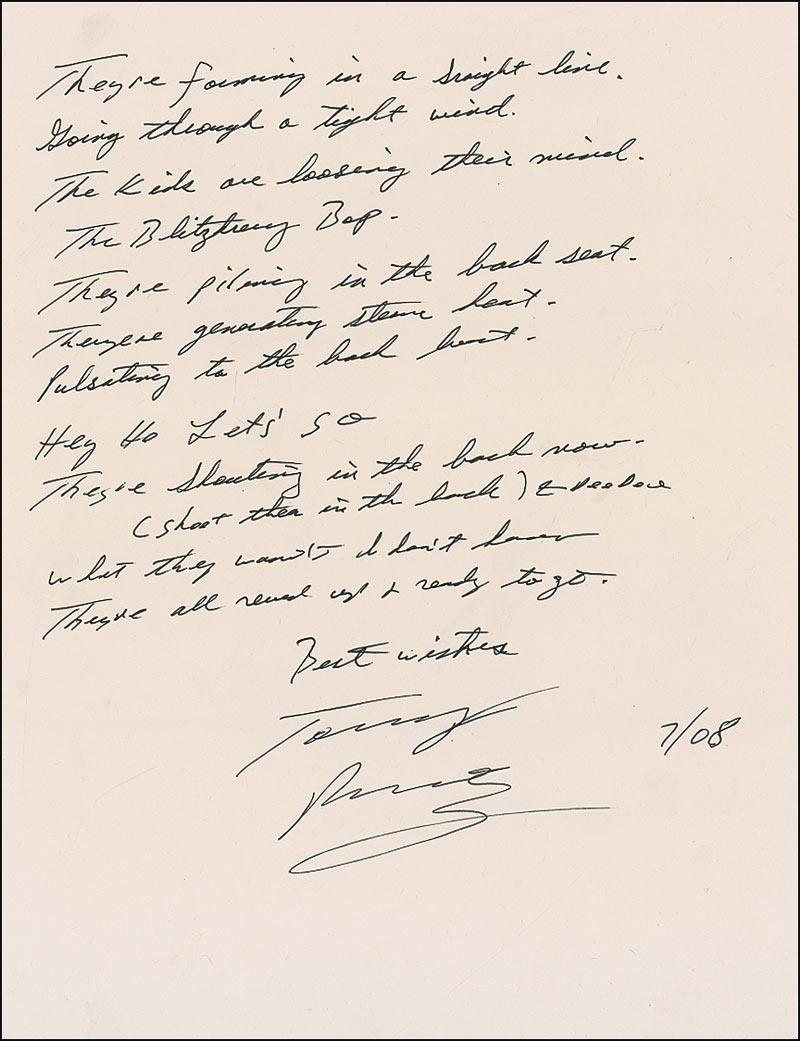 Theyre forming in a sraight line.
Going through a tight wind.
The Kids are loosing their mind.
The Blitzkrieg Bop.
Theyre piling in the back seat.
Theyere generating steam heat.
Pulsating to the back beat.
Hey Ho Let's go
Theyre shouting in the back now.
(shoot them in th back) ← DeeDee
what they want I don't know
Theyre all reved up & ready to go.
Best wishes
Tommy
Ramone
7/08